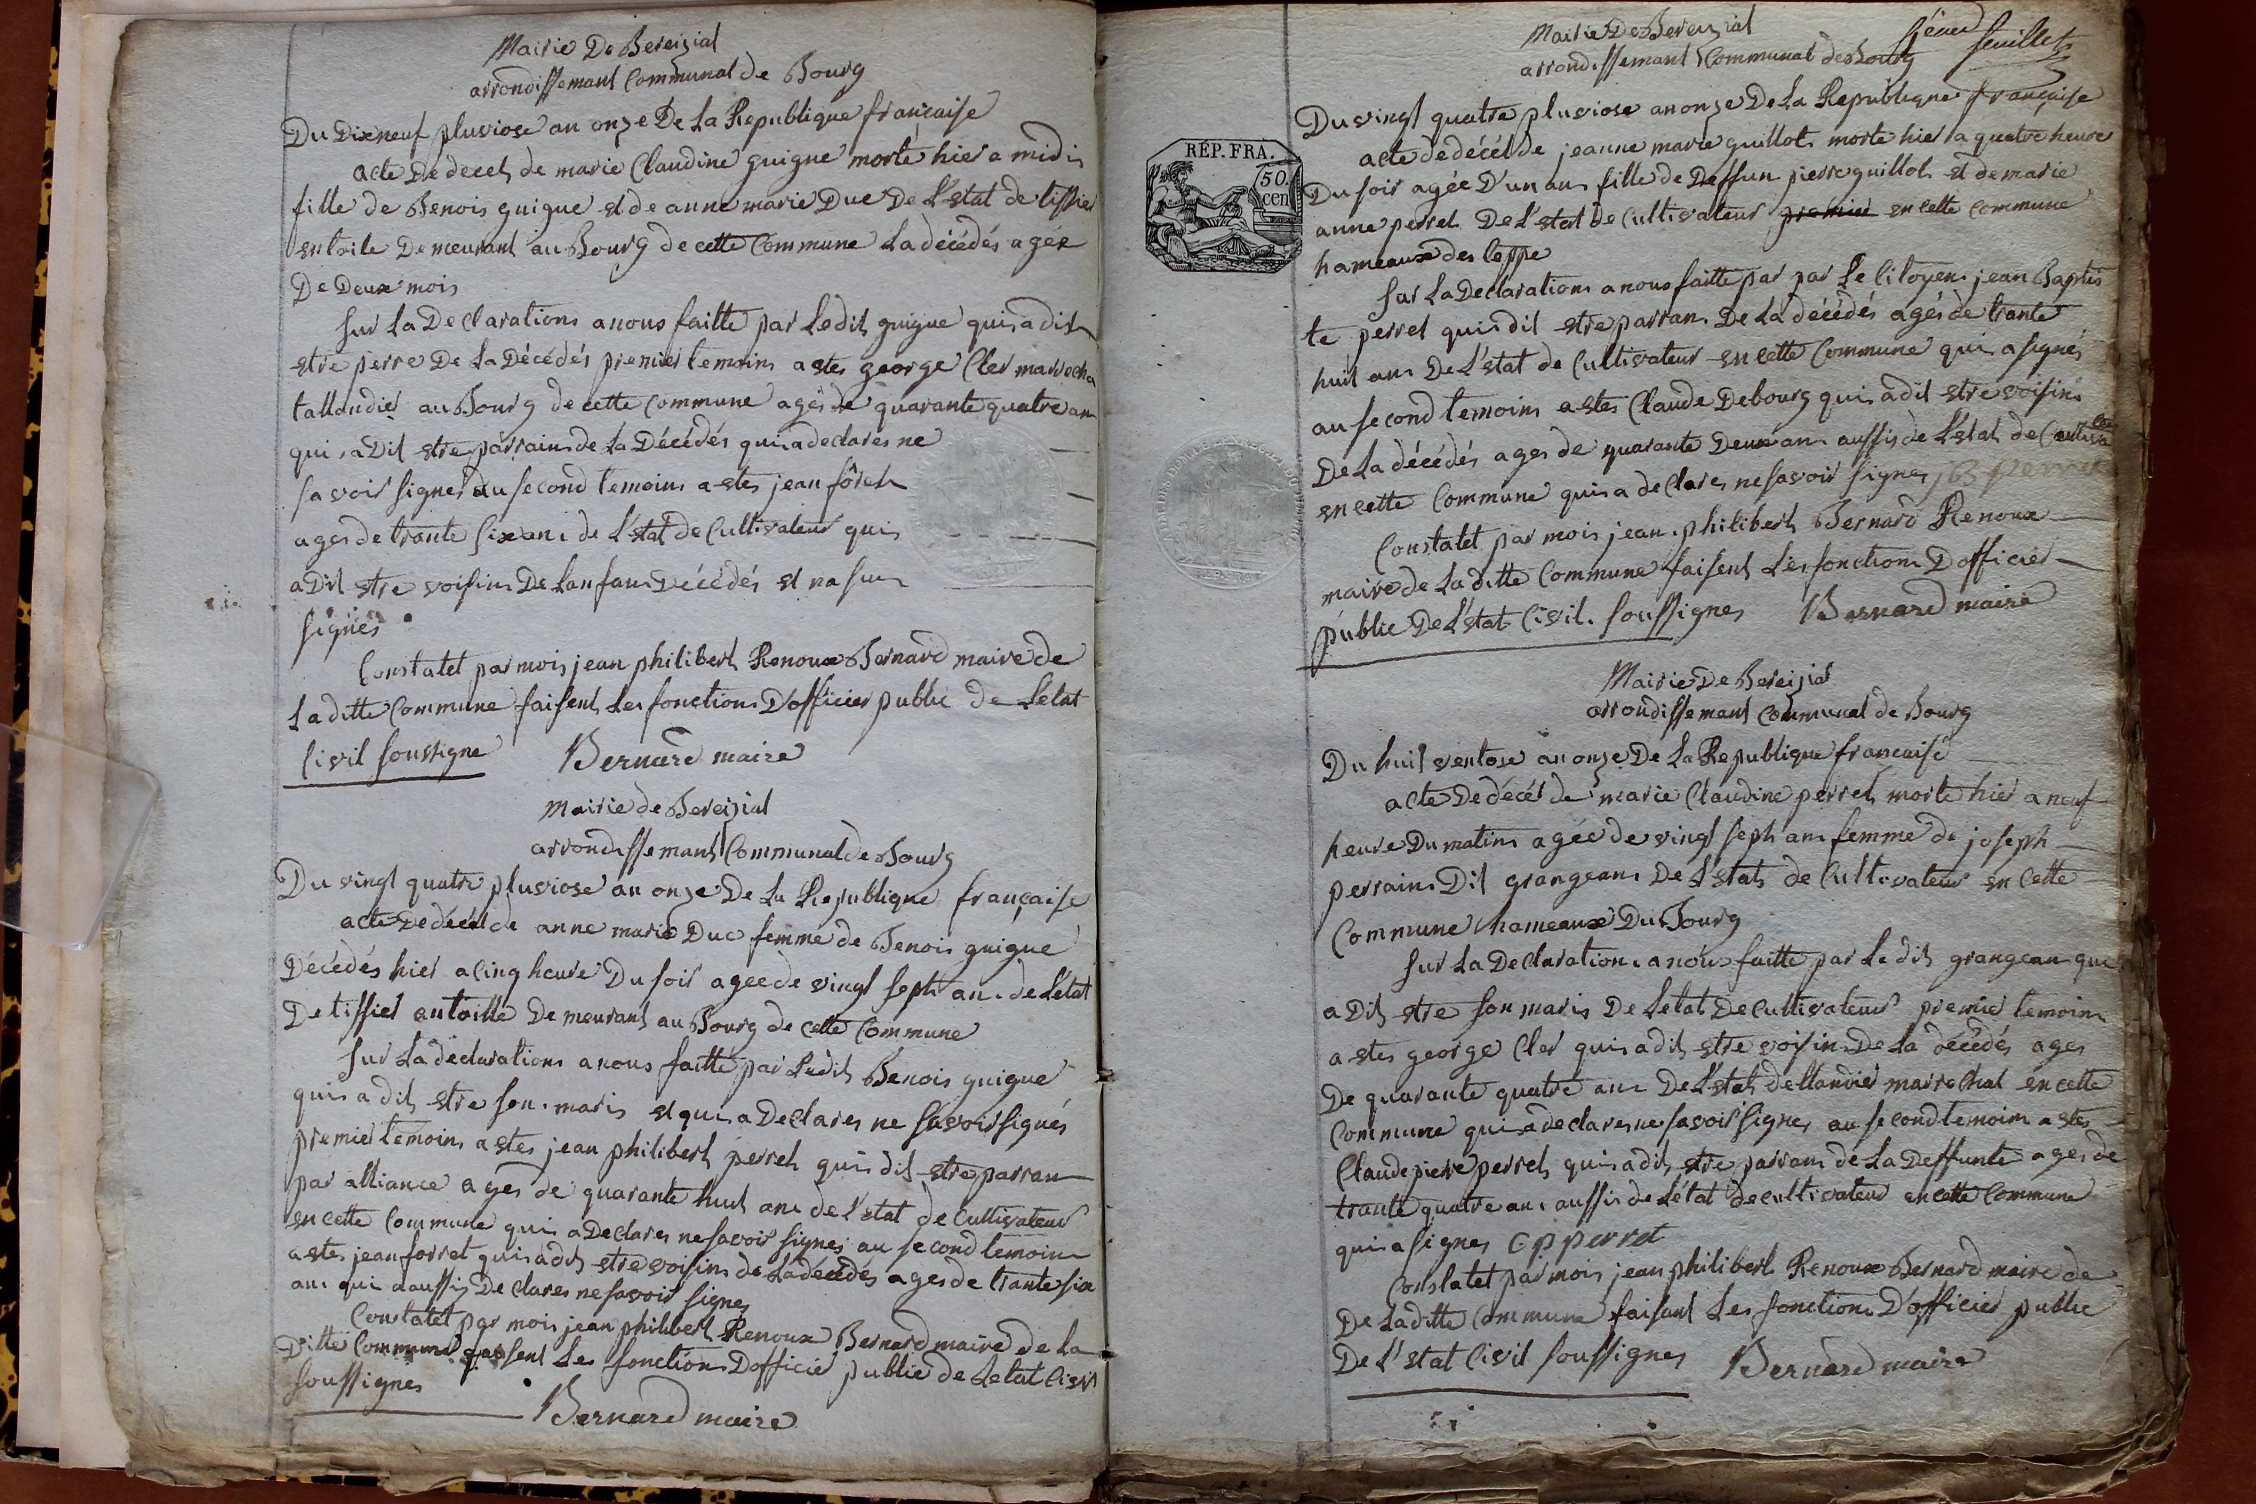 Mairie De Bereizial
arrondissemant Communal de Bourg
Du Dixneuf pluviose an onze De La Republique française
acte De decets de marie Claudine guigue morte hier a midis
fille de Benois guigue et de anne marie Duc De L'estat de tissier
entoile Demeurant au Bourg de cette Commune La décédés agée
De Deux mois
Sur La Declarations a nous faitte par Ledit guigue quis a dit
estre perre De La Décédés premier temoins a stes george Cler marrecha
tallandier au Bourg de cette Commune agés de quarante quatre an
quis a Dit estre parrains de La Décédés quis a declares ne
savoir signer au second temoins a stes jean fôret
ages de trante six ans de L'stat de Cultivateur quis
a Dit stre voisins De Lanfans Décédés et na sus
signés
Constatet par mois jean philibert Renoux Bernard maire de
La ditte Commune faisent Les fonctions D'officier public de Letat
Civil soussigne Bernard maire
Mairie de Bereizial
arrondissemant Communal de Bourg
Du vingt quatre pluviose an onze De La Republique française
acte De décèt de anne marie Duc femme de Benois guigue
Décédés hier a cinq heure Du soir agee de vingt sept an. de Létat
De tissier autoille Demeurant au Bourg de cette Commune
Sur La déclarations a nous faitte par Ledit Benois guigue
quis a dit stre son. maris et quis a Declares ne savoir signés
premier temoins a stes jean philibert perret quis dit stre parran
par alliance ages de quarante huit ans de L'stat de Cultivateur
en cette Commune quis a Declares ne savoir signes au second temoins
a stes jean forret quis a dit stre voisins de La décédés ages de trante six
an. qui a aussis De clares ne savoir signes
Constatet par mois jean philibert Renoux Bernard maire de La
Ditte Commune faisent Les fonctions Dofficier public de Letat Civil
soussignes
Bernard maire
feuillet
Mairie De Bereizial
arrondissemant Communal de Bourg
RÉP. FRA.
50.
cen
Du vingt quatre pluviose an onze De La Republique française
acte de décèt de jeanne marie guillot morte hier a quatre heure
Du soir agée D'un an fille de Deffun pierre guillot et de marie
anne perret De L'stat de Cultivateur premier en cette commune
hameaux des
Sur La Declarations a nous faitte par par Le Citoyen jean Baptis
te perret quis dit stre parran De La décédés agés de trante
huit ans De L'stat de Cultivateur en cette Commune quis a signés
au second temoins a stes Claude Debourg quis a dit stre voisins
De La décédés ages de quarante Deux an aussis de L'stat de
en cette Commune quis a declares ne savoir signes jB perret
Constatet par mois jean. philibert Bernard Renoux
maire de La ditte Commune faisent Les fonctions D officier
public De L'stat Civil. soussignes Bernard maire
Mairie De Bereizial
arrondissemant Communal de Bourg
Du huit ventose an onze De La Republique francaise
acte De décét de marie Claudine perret morte hier a neuf
heure Du matins agée de vingt sept ans femme de joseph
perrains Dit grangeans De L'stat de Cultivateur en cette
Commune hameaux Du Bourg
Sur La Declarations a nous faitte par Le dit grangean qui
a Dit stre son maris De Letat De cultivateur premier temoins
a stes george Cler quis a dit stre voisins De La décédés ages
De quarante quatre ans De L'stat dellandier marrechal en cette
Commune quis a declares ne savoir signes au second temoins a stes
Claude pierre perret quis a dit stre parrans de La Deffunte ages de
trante quatre an. aussis de Létat de cultivateur en cette Commune
quis a signes Cp perret
Constatet par mois jean philibert Renoux Bernard maire de
De La ditte Commune faisant Les fonctions D'officier public
De L'stat Civil soussignes Bernard maire